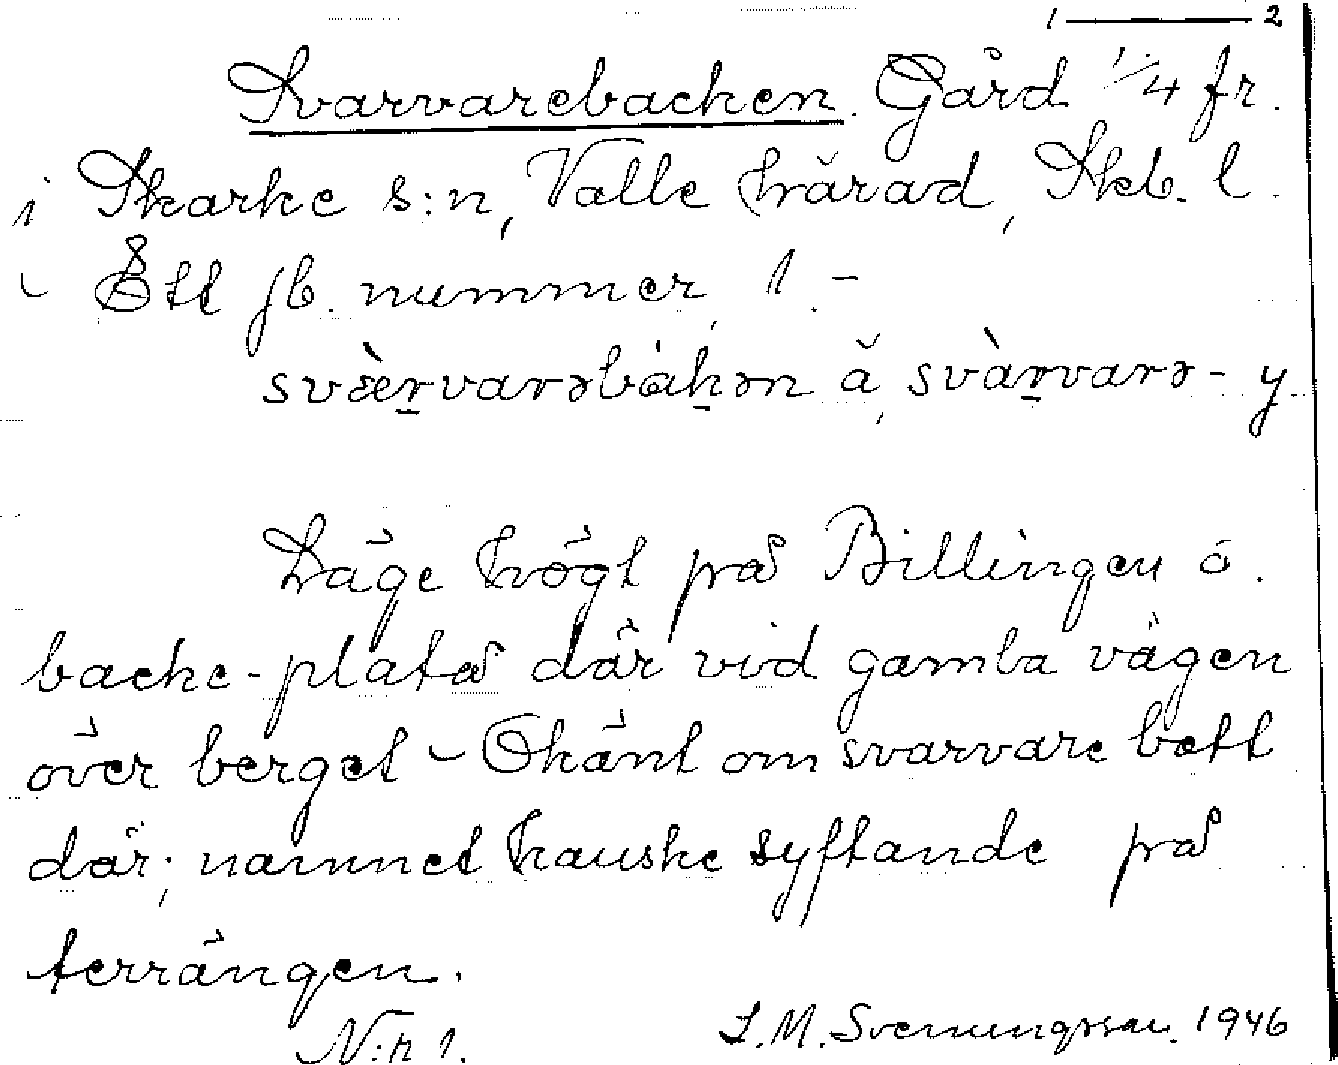 1 — 2
Svarvarebacken. Gård 1/4 fr.
i Skarke s:n, Valle härad, Skb. l.
Ett jb. nummer, 1. -
svæ̀rvarəbákən å, svàrvarə- y
Läge högt på Billingen ö.
backe-platå där vid gamla vägen
över berget - Okänt om svarvare bott
där; namnet kanske syftande på
terrängen.
N:r 1.
S.M. Svenungsson. 1946